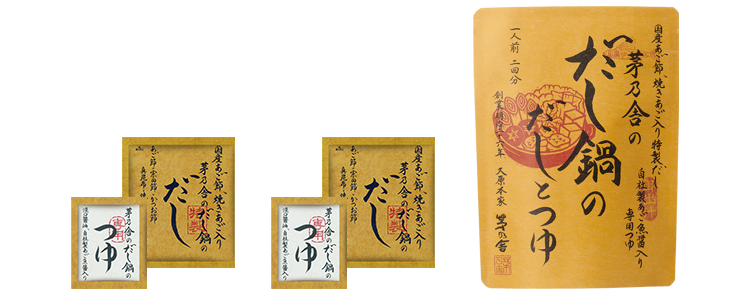 国産あご節、焼きあご入り
茅乃舎のだし鍋の
特製
だし
あご節・宗田節・かつお節
真昆布・他
茅乃舎のだし鍋の
専用
つゆ
国産あご節、焼きあご入り
茅乃舎のだし鍋の
特製
だし
あご節・宗田節・かつお節
真昆布・他
茅乃舎のだし鍋の
専用
つゆ
国産あご節、焼きあご入り特製だし
自社製あご魚醤入り
専用つゆ
茅乃舎の
だし鍋の
だしとつゆ
一人前 二回分
久原本家 茅乃舎